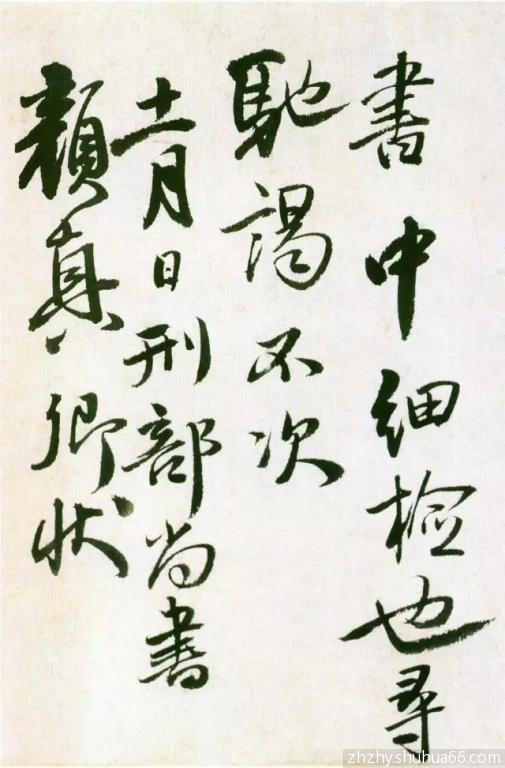 書中細檢也尋
馳謁不次
十一月日刑部尚書
顏真卿狀
zhzhy.shuhua66.com